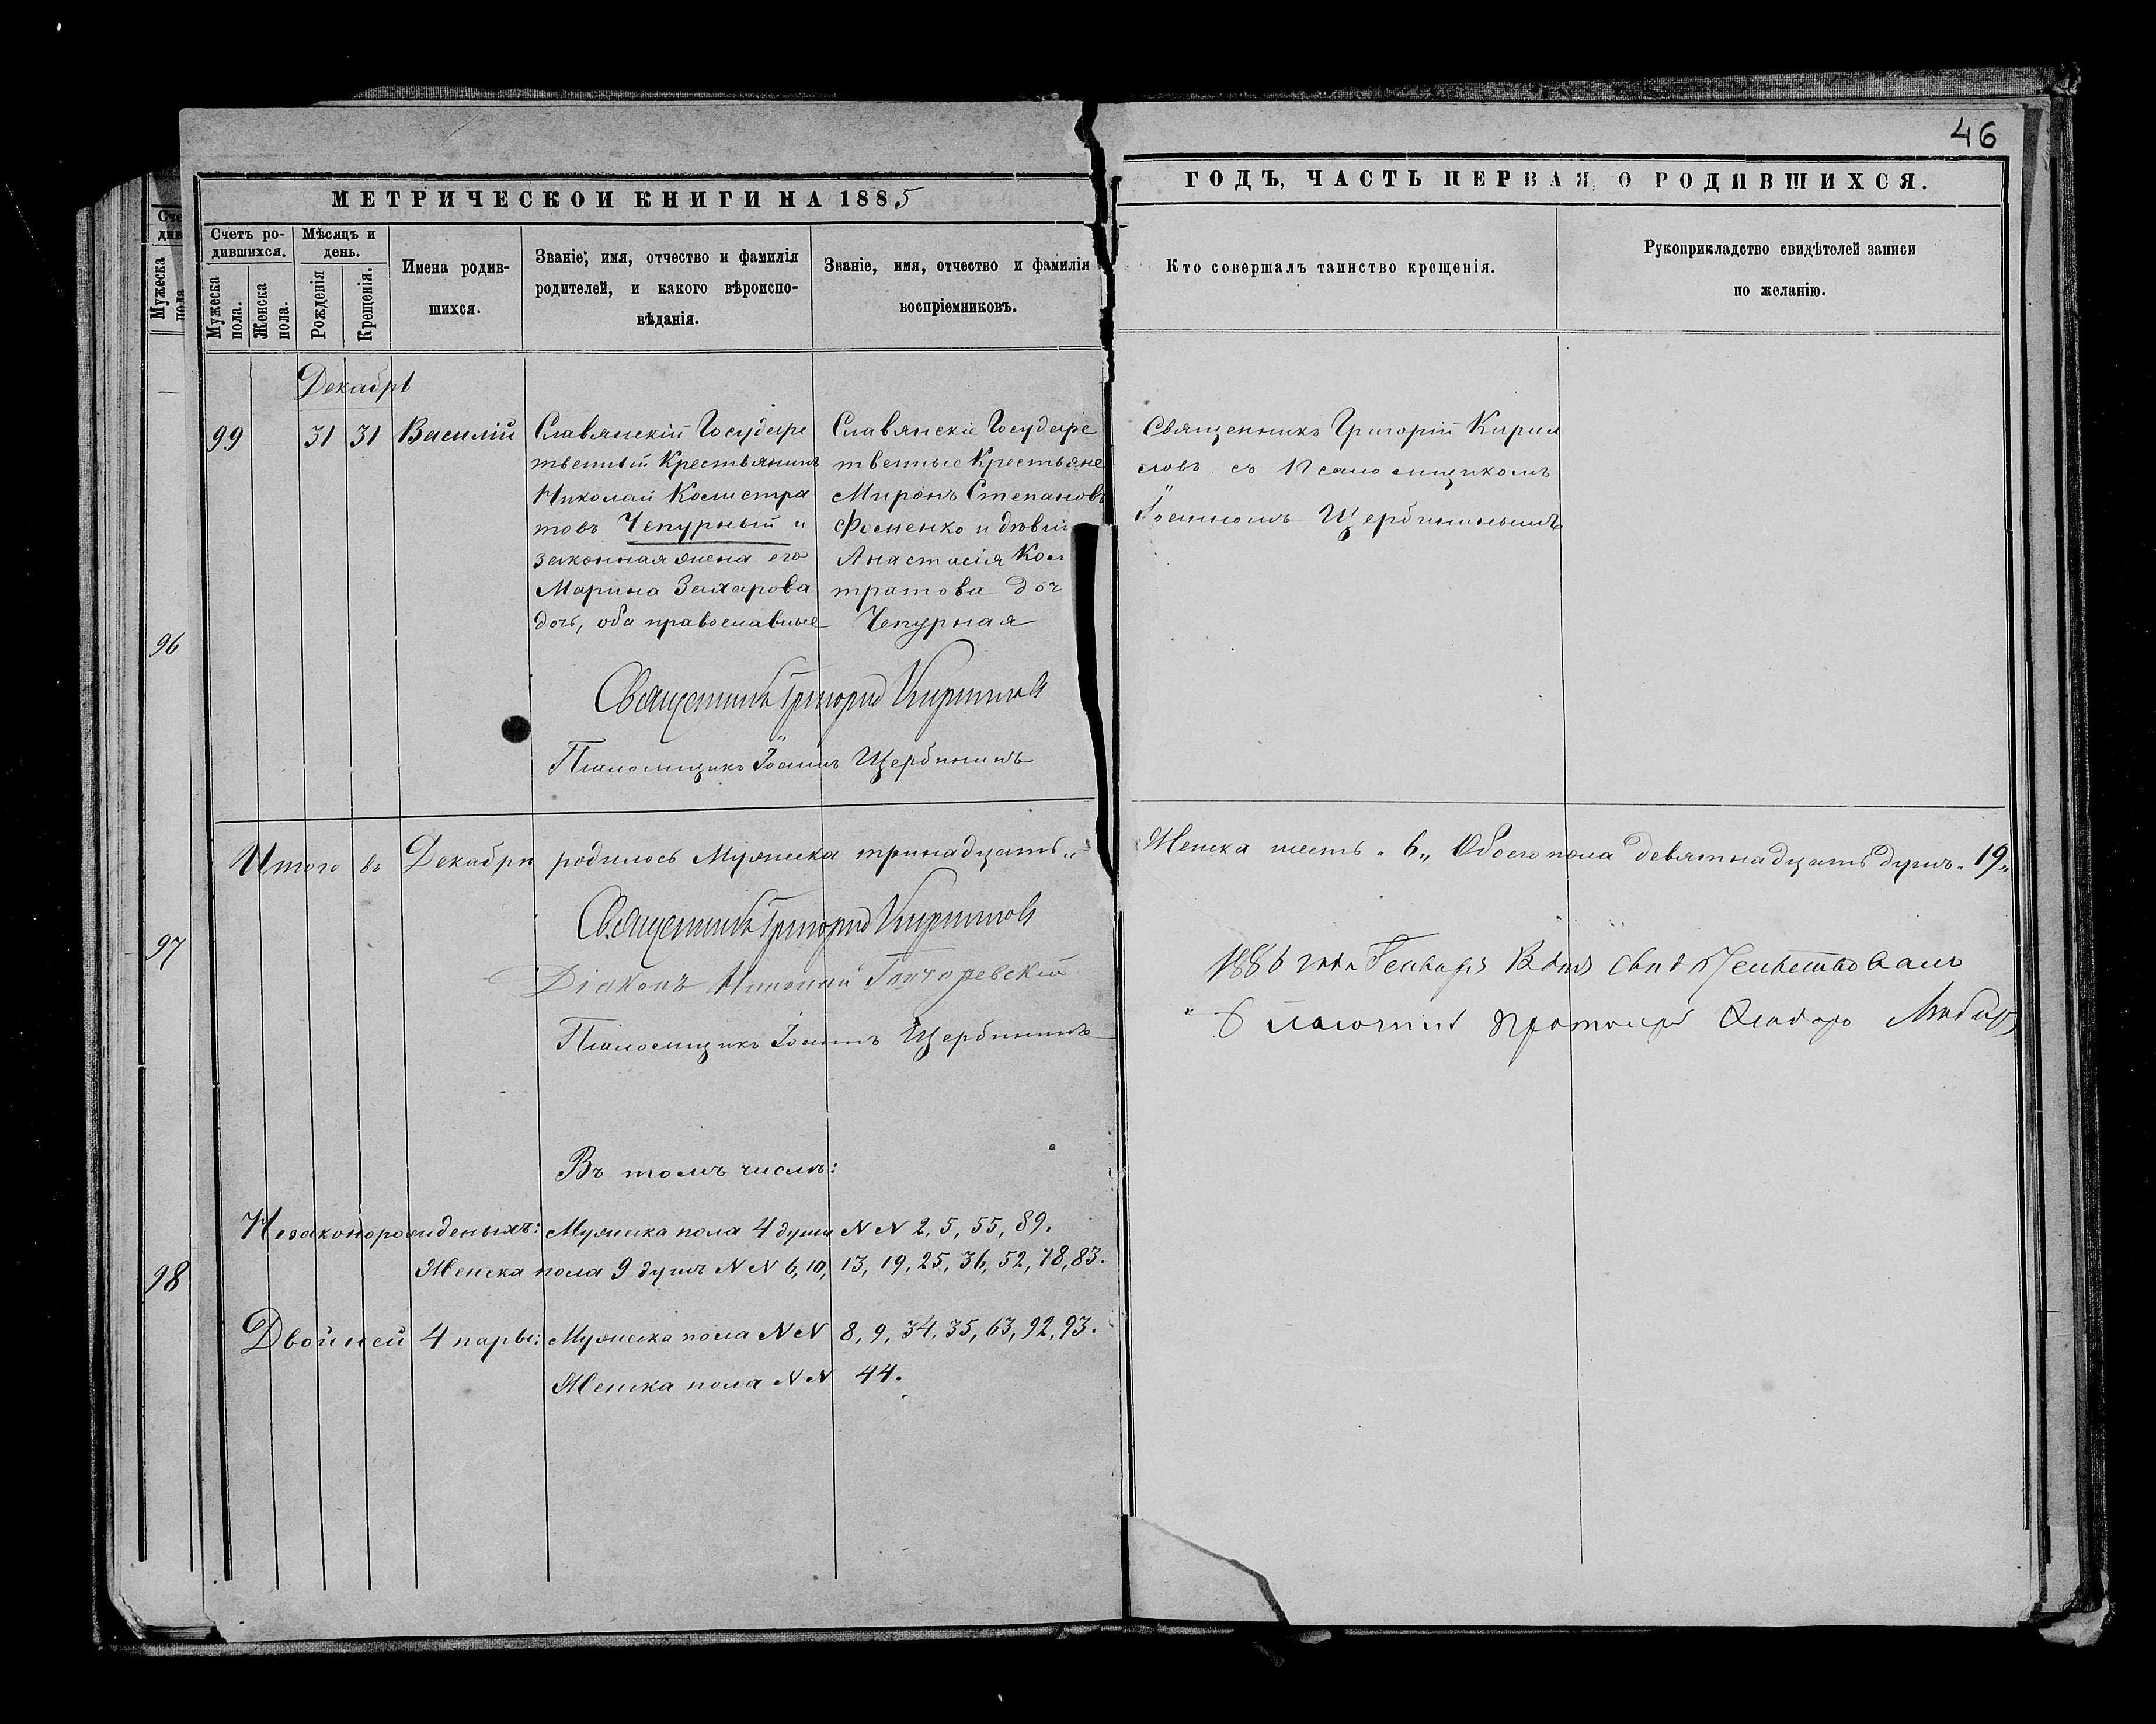 46
МЕТРИЧЕСКОИ КНИГИ НА 1885
ГОДЪ, ЧАСТЬ ПЕРВАЯ, О РОДИВШИХСЯ.
Счетъ ро-
дившихся.
Мужеска
пола.
Женска
пола.
Мѣсяцъ и
день.
Рожденія
Крещенія.
Имена родив-
шихся.
Званіе, имя, отчество и фамилія
родителей, и какого вѣроиспо-
вѣданія.
Званіе, имя, отчество и фамилія
воспріемниковъ.
Кто совершалъ таинство крещенія.
Рукоприкладство свидѣтелей записи
по желанію.
Мужеска
пола
96
97
98
Декабрь
99 31 31 Василій
Славянскій Государс
твенный Крестьянинъ
Николай Калистра
товъ Чепурный и
законная жена его
Марина Захарова
дочь, оба православные
Славянскіе Государс
твенные Крестьяне
Миронъ Степановъ
Фоменко и
Анастасія
тратова
Чепурная
Священникъ Григорій Кирил
ловъ съ Псаломщикомъ
Іоанномъ Щербининымъ
Священникъ Григорій Кирилловъ
Псаломщикъ Іоаннъ Щербининъ
Итого въ Декабрѣ родилось Мужеска тринадцать
Женска шесть „6„ Обоего пола девятнадцать душъ „19„
Священникъ Григорій Кирилловъ
Діаконъ
Псаломщикъ Іоаннъ Щербининъ
1886 года Генваря
Въ томъ числѣ:
Незаконорожденыхъ: Мужеска пола 4 души NN 2, 5, 55, 89.
Женска пола 9 душъ NN 6, 10, 13, 19, 25, 36, 52, 78, 83.
Двойней 4 пары: Мужеска пола NN 8, 9, 34, 35, 63, 92, 93.
Женска пола NN 44.